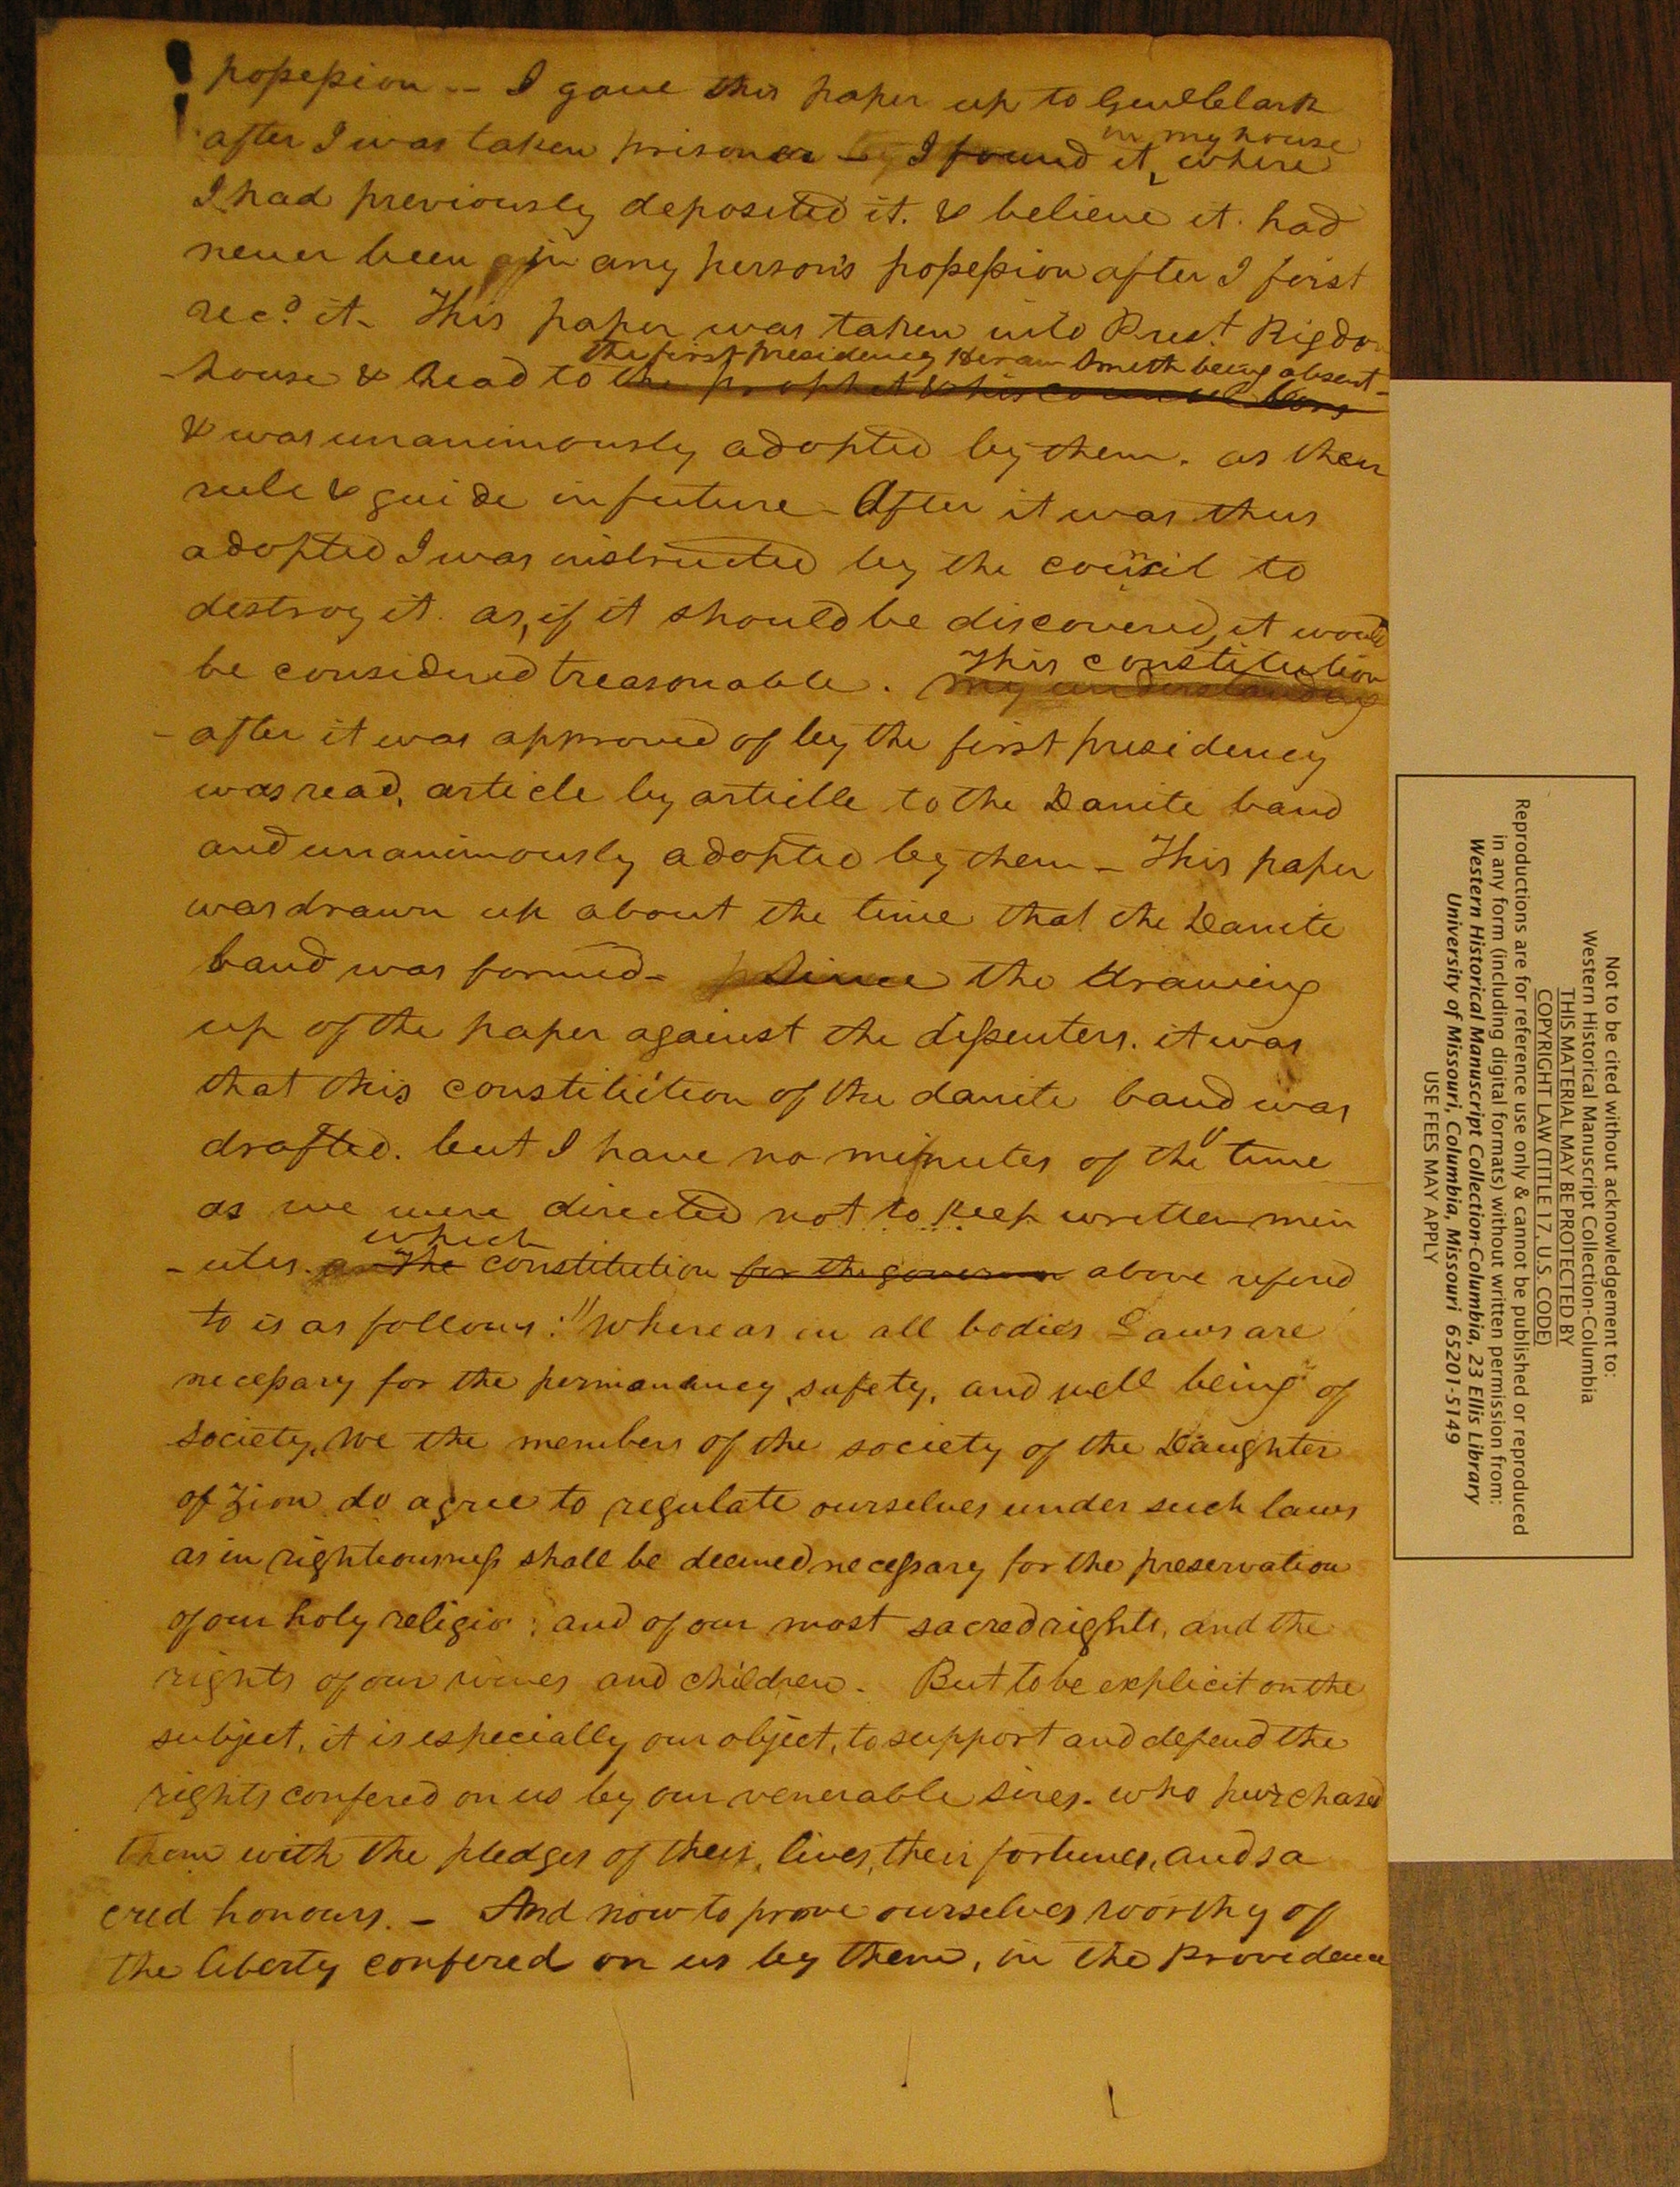 possession -- I gave this paper up to Genl Clark
after I was taken prisoner - I found it in my house where
I had previously deposited it. & believe it had
never been in any person's possession after I first
recd it - This paper was taken into Prest Rigdon
house & read to the prophet & his councillors the first presidency Hiram Smith being absent -
& was unanimously adopted by them. as their
rule & guide in future - After it was thus
adopted I was instructed by the council to
destroy it. as, if it should be discovered, it would
be considered treasonable. my understanding This constitution
- after it was approved of by the first presidency
was read, article by articlle to the Danite band
and unanimously adopted by them - This paper
was drawn up about the time that the Danite
band was formed - Since the drawing
up of the paper against the dissenters. it was
that this constitution of the danite band was
drafted. but I have no minutes of the time
as we were directed not to keep written min
- utes. The which constitution for the governm above refered
to is as follows: "Whereas in all bodies Laws are
necessary for the permanancy, safety, and well being of
society, We the members of the society of the Daughter
of Zion do agree to regulate ourselves under such laws
as in righteousness shall be deemed necessary for the preservation
of our holy religio : and of our most sacred rights, and the
rights of our wives and children. But to be explicit on the
subject, it is especially our object, to support and defend the
rights confered on us by our venerable sires. who purchased
them with the pledges of their, lives, their fortunes, and sa
cred honours. - And now to prove ourselves worthy of
the liberty confered on us by them, in the providence
Not to be cited without acknowledgement to:
Western Historical Manuscript Collection-Columbia
THIS MATERIAL MAY BE PROTECTED BY
COPYRIGHT LAW (TITLE 17, U.S. CODE)
Reproductions are for reference use only & cannot be published or reproduced
in any form (including digital formats) without written permission from:
Western Historical Manuscript Collection-Columbia, 23 Ellis Library
University of Missouri, Columbia, Missouri 65201-5149
USE FEES MAY APPLY